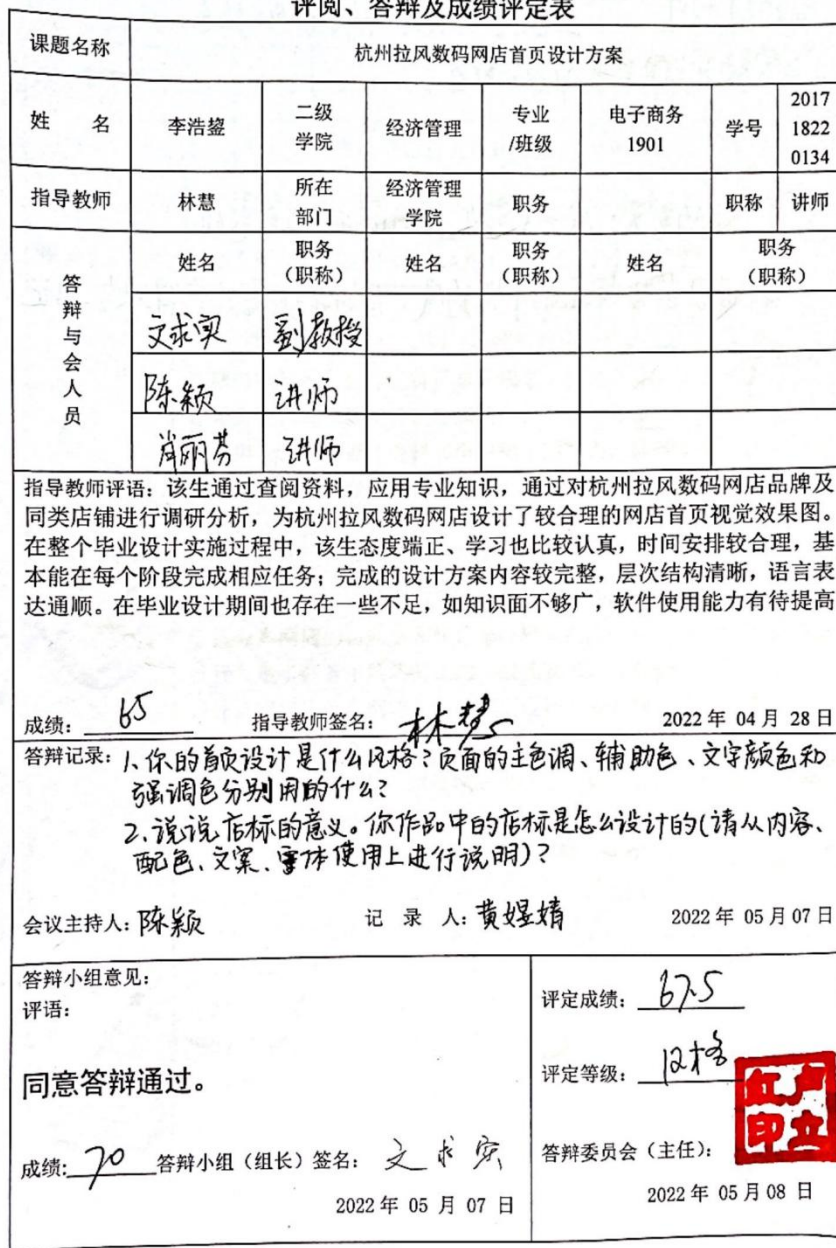 评阅、答辩及成绩评定表
课题名称 杭州拉风数码网店首页设计方案
姓 名 李浩鋆 二级学院 经济管理 专业/班级 电子商务1901 学号 201718220134
指导教师 林慧 所在部门 经济管理学院 职务 职称 讲师
答辩与会人员 姓名 职务（职称） 姓名 职务（职称） 姓名 职务（职称）
文求实 副教授
陈颖 讲师
肖丽芬 讲师
指导教师评语：该生通过查阅资料，应用专业知识，通过对杭州拉风数码网店品牌及
同类店铺进行调研分析，为杭州拉风数码网店设计了较合理的网店首页视觉效果图。
在整个毕业设计实施过程中，该生态度端正、学习也比较认真，时间安排较合理，基
本能在每个阶段完成相应任务；完成的设计方案内容较完整，层次结构清晰，语言表
达通顺。在毕业设计期间也存在一些不足，如知识面不够广，软件使用能力有待提高
成绩：65 指导教师签名：林慧 2022 年 04 月 28 日
答辩记录：1、你的首页设计是什么风格？页面的主色调、辅助色、文字颜色和
强调色分别用的什么？
2、说说店标的意义。你作品中的店标是怎么设计的（请从内容、
配色、文案、字体使用上进行说明）？
会议主持人：陈颖 记 录 人：黄煜婧 2022 年 05 月 07 日
答辩小组意见：
评语：
同意答辩通过。
成绩：70 答辩小组（组长）签名：文求实
2022 年 05 月 07 日
评定成绩：67.5
评定等级：及格
答辩委员会（主任）：卢立红印
2022 年 05 月 08 日